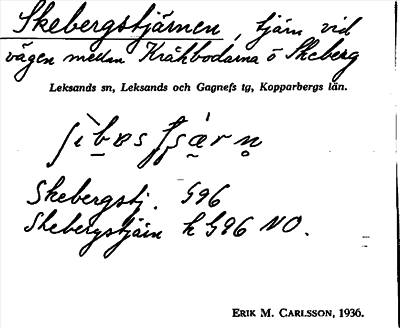 Skebergstjärnen, tjärn vid
vägen mellan Kråkbodarna o Skeberg
Leksands sn, Leksands och Gagnefs tg, Kopparbergs län.
Skebergstj. G96
Skebergstjärn h G96 NO.
ERIK M. CARLSSON, 1936.